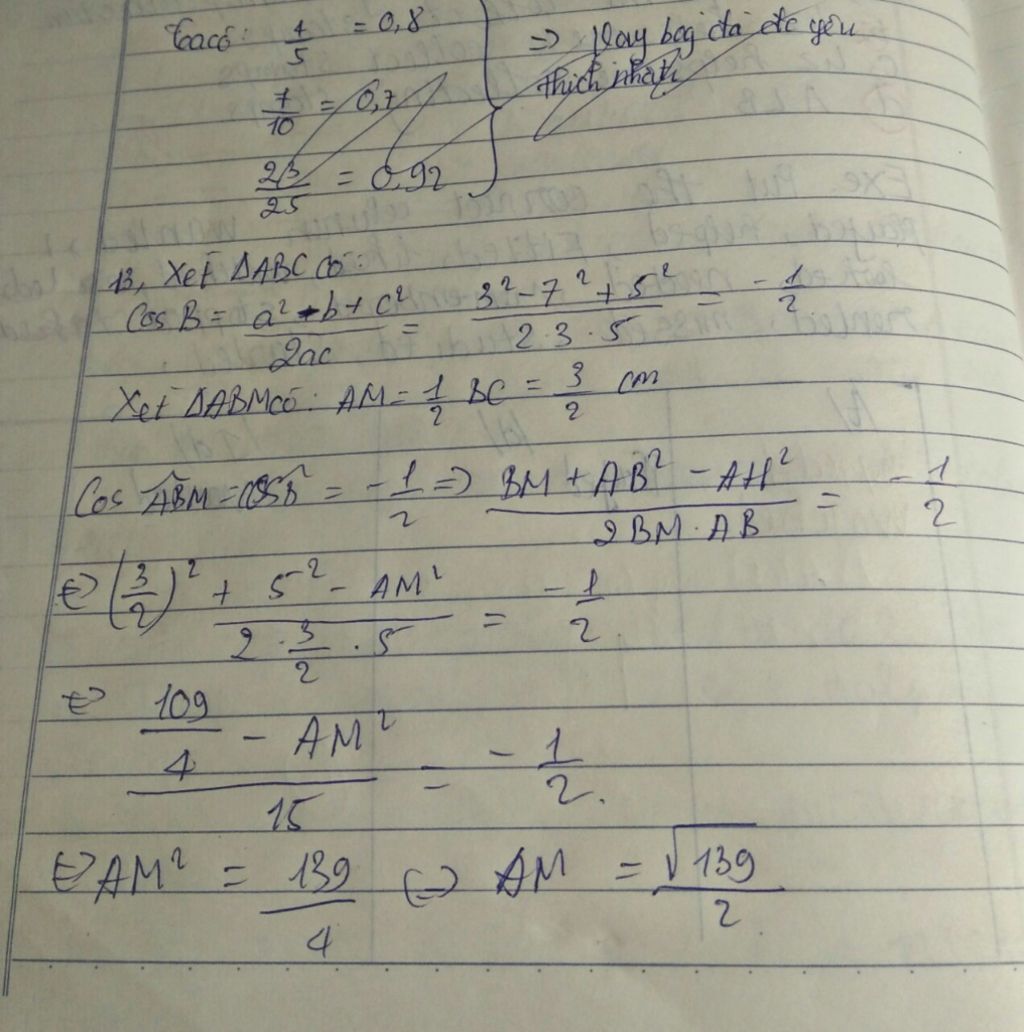 Ta có: 4/5 = 0,8
7/10 = 0,7
23/25 = 0,92
=> Nay bog đá đc yêu
thích nhất
13, Xét ΔABC có:
Cos B = (a² - b + c²)/2ac = (3² - 7² + 5²)/(2 · 3 · 5) = -1/2
Xét ΔABM có: AM = 1/2 BC = 3/2 cm
Cos ABM = cosB = -1/2 => (BM + AB² - AH²)/(2BM · AB) = -1/2
<=> ((3/2)² + 5² - AM²)/(2 · 3/2 · 5) = -1/2
<=> (109/4 - AM²)/15 = -1/2.
<=> AM² = 139/4 <=> AM = √139/2